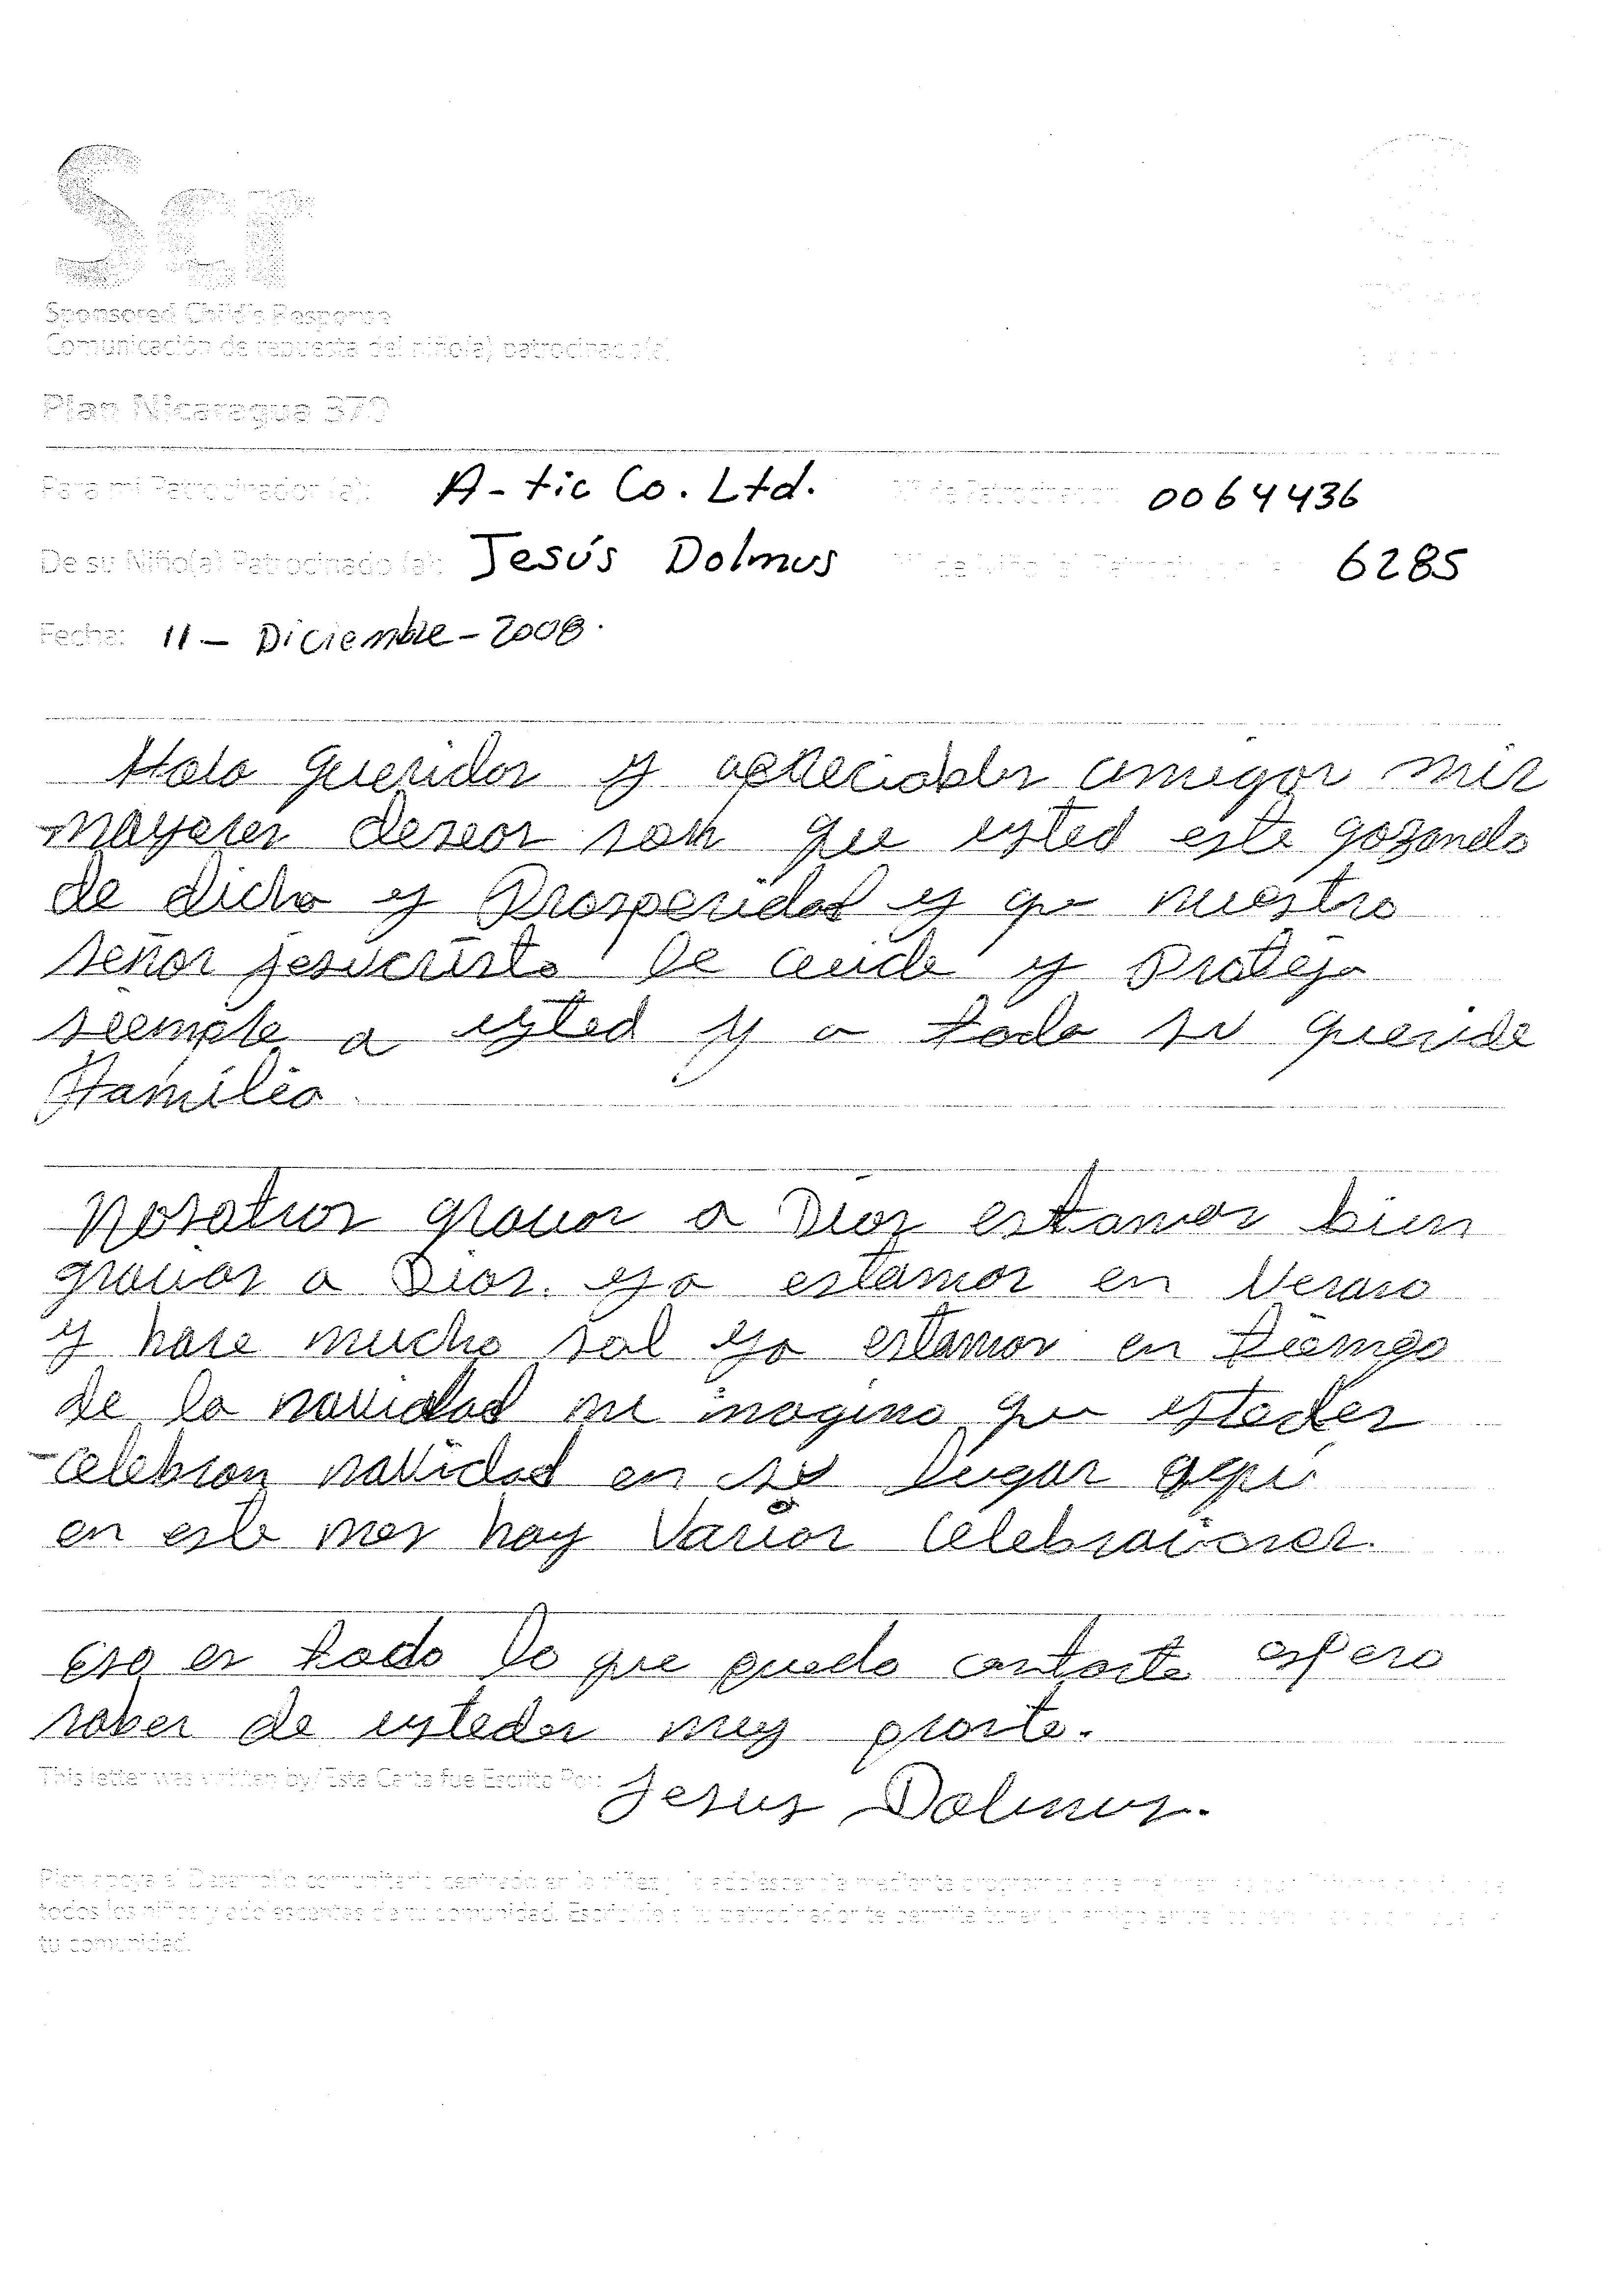 Scr
Sponsored Child's Response
Comunicación de repuesta del niño(a) patrocinado(a)
Plan Nicaragua 370
Para mi Patrocinador (a): A-tic Co. Ltd. Nº de Patrocinador: 0064436
De su Niño(a) Patrocinado (a): Jesús Dolmus 6285
Fecha: 11 - Diciembre - 2008.
Hola queridos y apreciables amigos mis
mayores deseos son que usted este gozando
de dicha y Prosperidad y que nuestro
señor jesucristo le cuide y proteja
siempre a usted y a toda su querida
Familia.
Nosotros gracias a Dios estamos bien
gracias a Dios. ya estamos en Verano
y hase mucho sol ya estamos en tiempo
de la navidad me imagino que ustedes
celebran navidad en su lugar aqui
en este mes hay Varias Celebraciones.
Eso es todo lo que puedo contarte espero
saber de ustedes muy pronto.
This letter was written by/Esta Carta fue Escrito Por: Jesus Dolmus.
Plan apoya el Desarrollo comunitario centrado en la niñez y la adolescencia mediante programas que
todos los niños y adolescentes de tu comunidad. Escribirle a tu patrocinador te permite tener un amigo
tu comunidad.